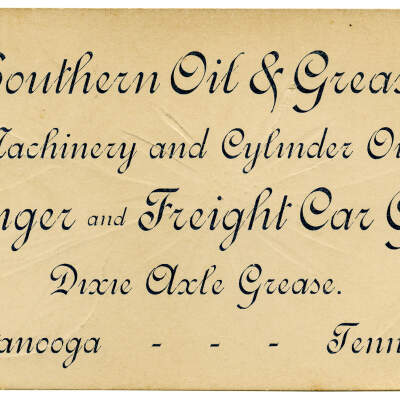 Southern Oil & Greas
Machinery and Cylinder Oi
nger and Freight Car G
Dixie Axle Grease.
anooga - - - Tenn